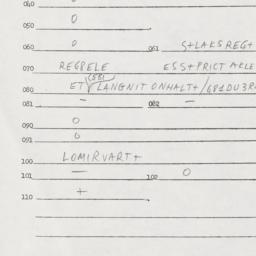 040
050 0
060 0 061 S+LAKSREG+
070 REGPELE ESS+PRICT
080 ET LANGNIT ONHALT+/681DU3R
081 — 082 —
090 0
091 0
100 LOMIRVART+
101 — 0
110 +